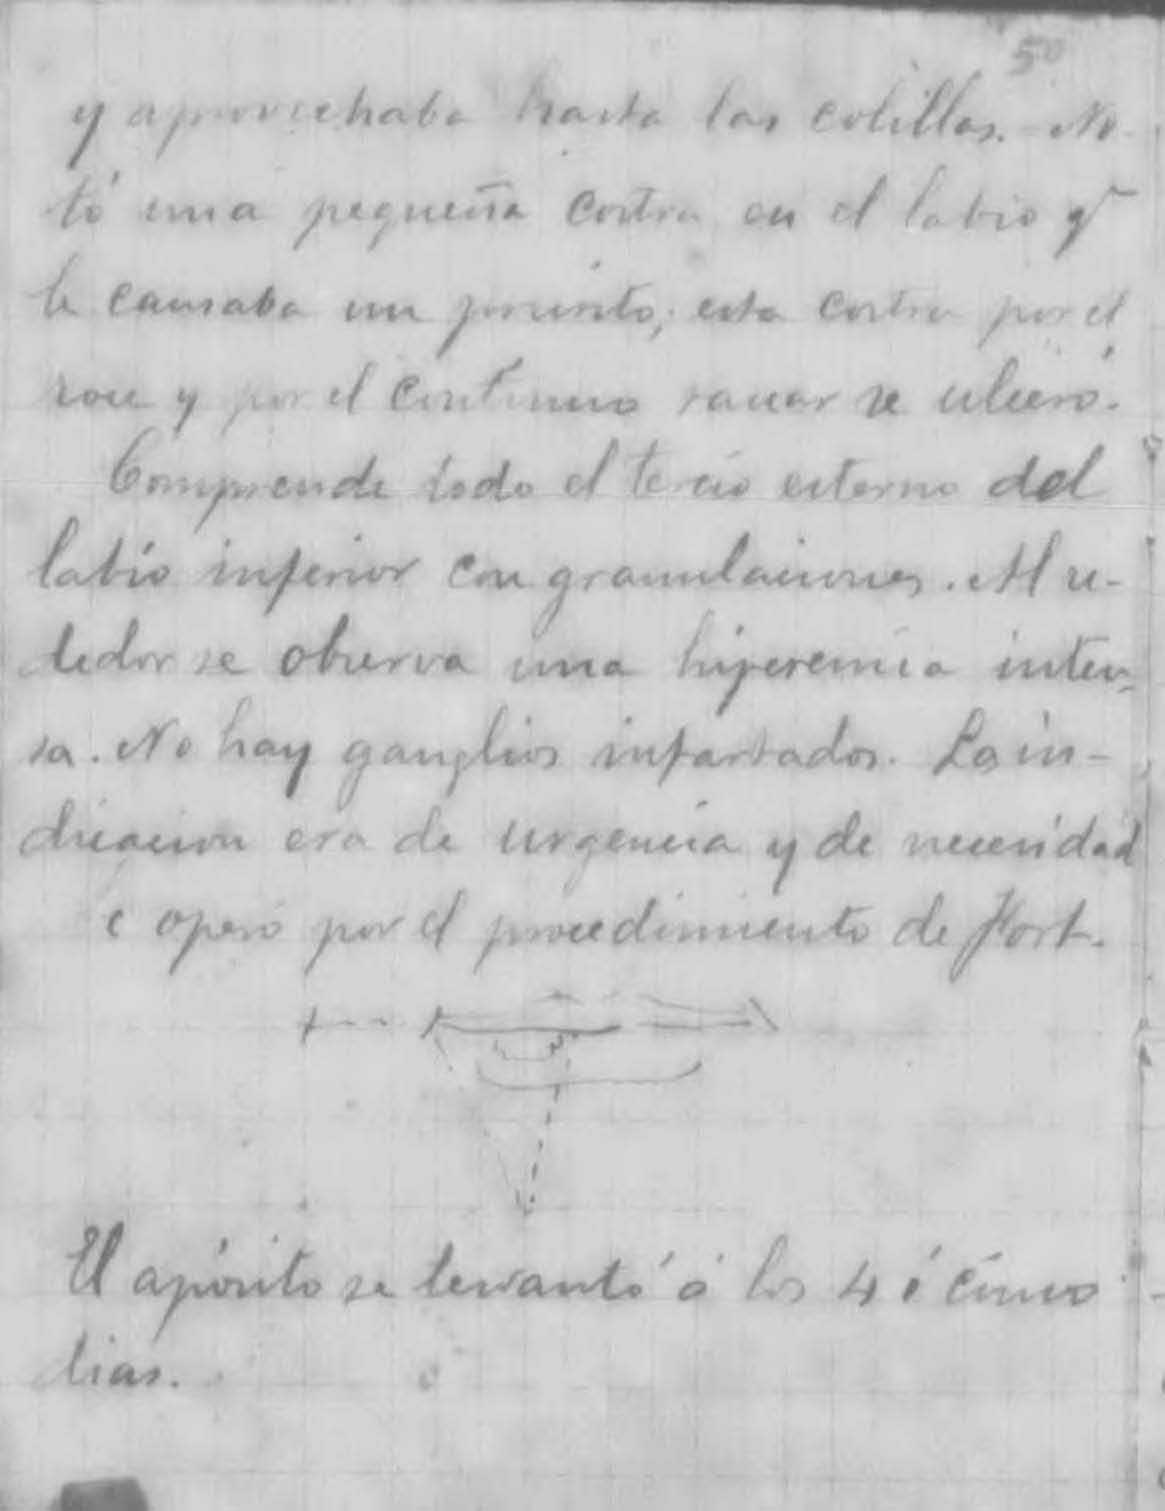 50
y aprovechaba hasta las colillas. - No-
tó una pequeña costra en el labio q
le causaba un prurito; esta costra por el
roce y por el continuo rascar se ulceró.
Comprende todo el tercio externo del
labio inferior con granulaciones. Al re-
dedor se observa una hiperemia inten-
sa. No hay ganglios infartados. La in-
dicacion era de urgencia y de necesidad
e operó por el procedimiento de
El apósito se levantó á los 4 ó cinco
dias.